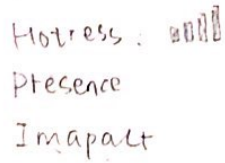 Hotress :
Presence
Imapact